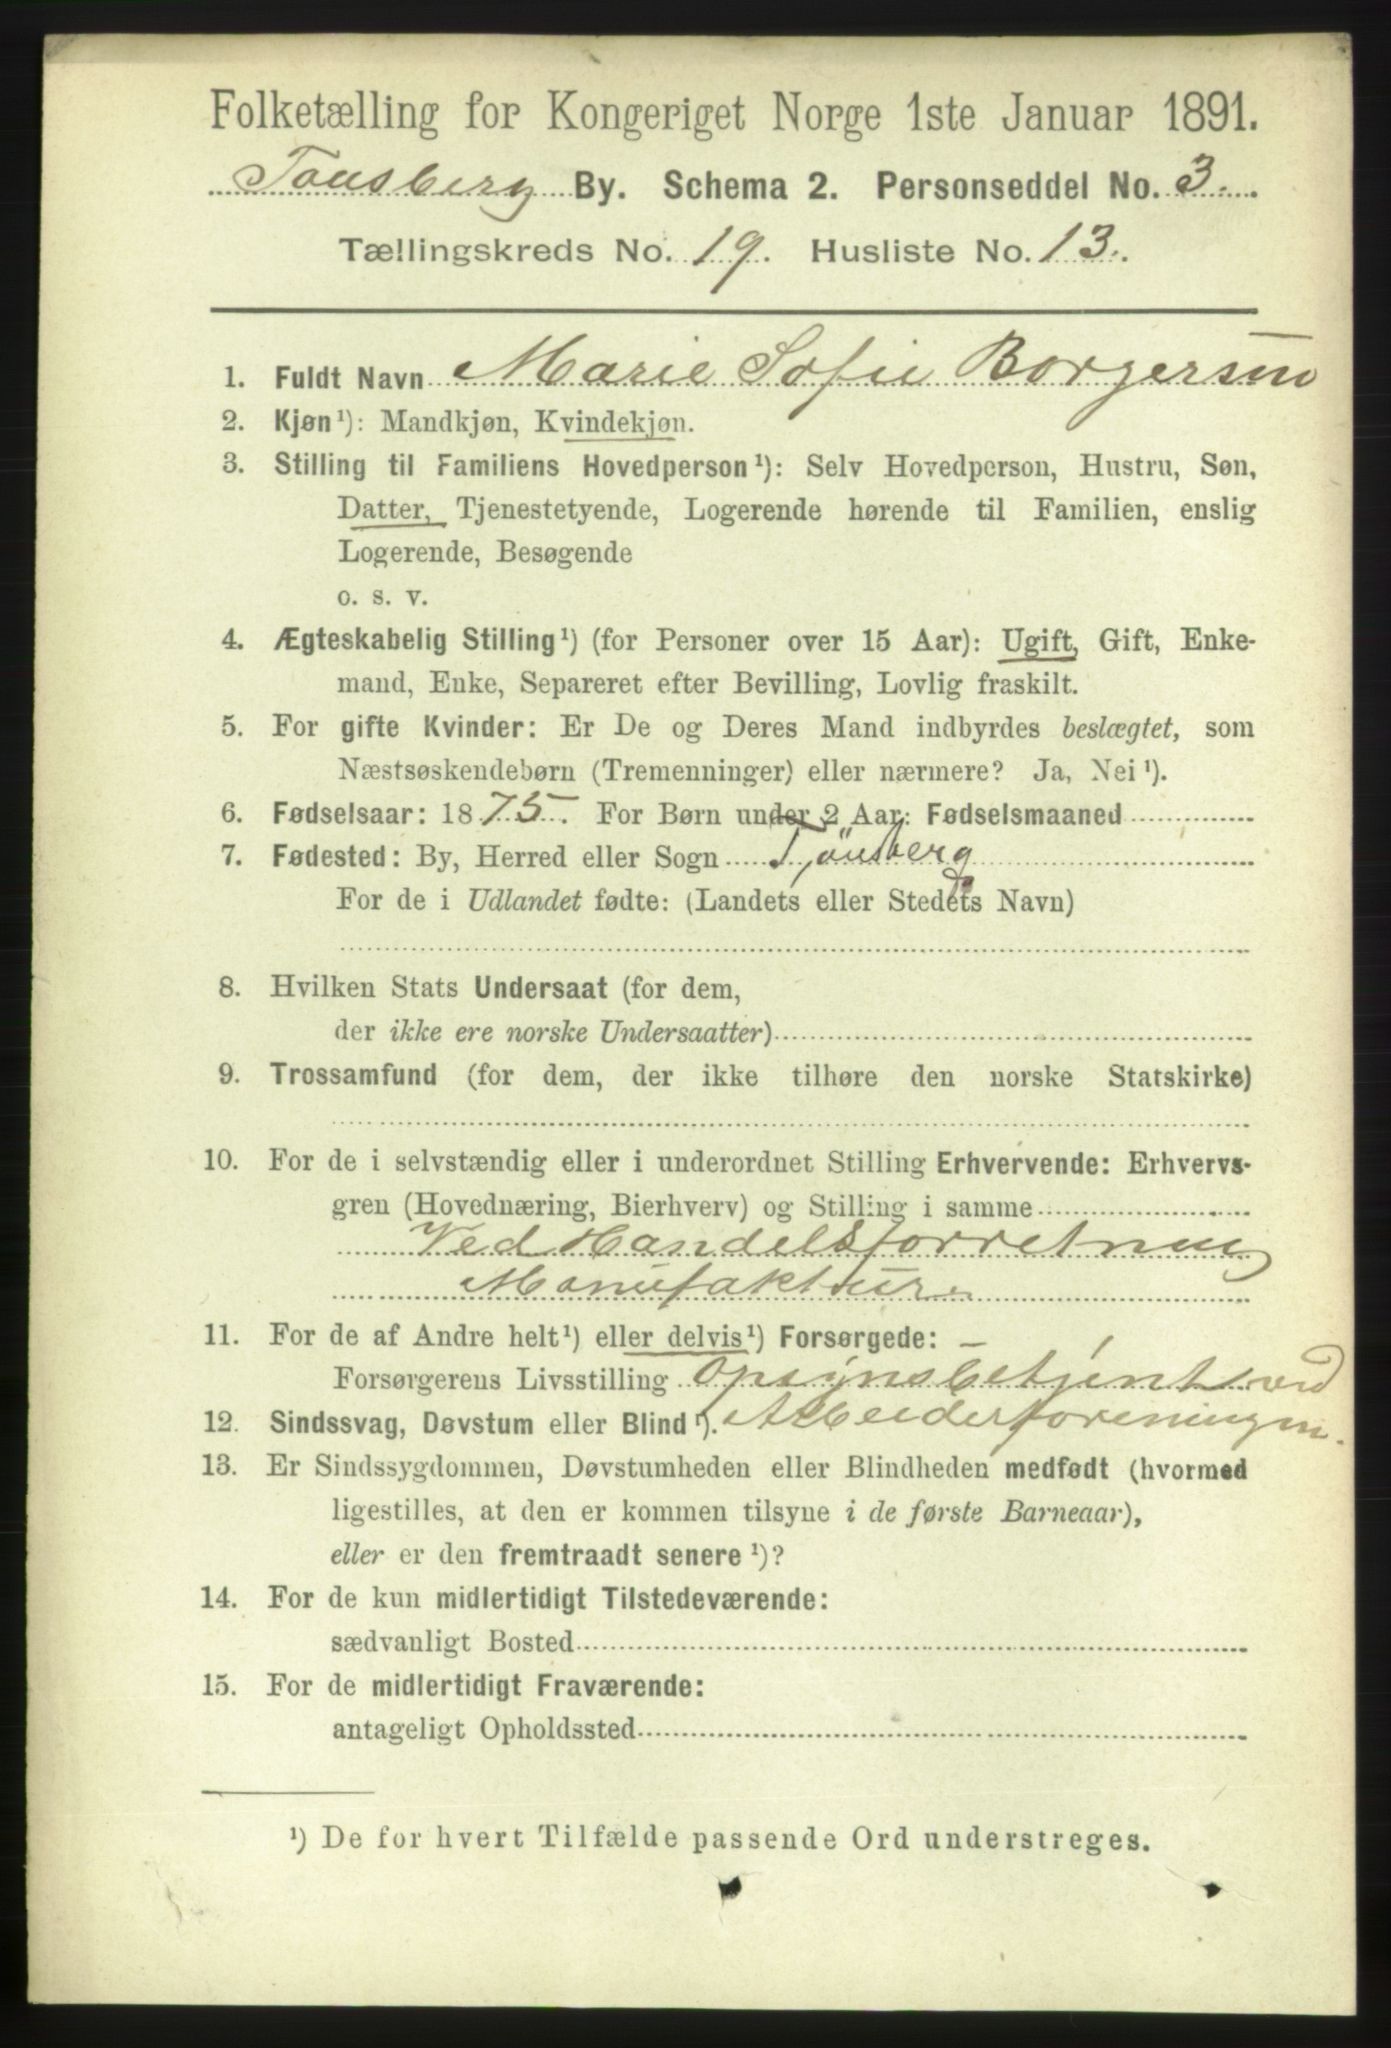 Folketælling for Kongeriget Norge 1ste Januar 1891.
Tønsberg By. Schema 2. Personseddel No. 3.
Tællingskreds No. 19. Husliste No. 13.
1. Fuldt Navn Marie Sofie Borgersen
2. Kjøn¹): Mandkjøn, Kvindekjøn.
3. Stilling til Familiens Hovedperson¹): Selv Hovedperson, Hustru, Søn,
Datter, Tjenestetyende, Logerende hørende til Familien, enslig
Logerende, Besøgende
o. s. v.
4. Ægteskabelig Stilling¹) (for Personer over 15 Aar): Ugift, Gift, Enke-
mand, Enke, Separeret efter Bevilling, Lovlig fraskilt.
5. For gifte Kvinder: Er De og Deres Mand indbyrdes beslægtet, som
Næstsøskendebørn (Tremenninger) eller nærmere? Ja, Nei¹).
6. Fødselsaar: 1875. For Børn under 2 Aar: Fødselsmaaned
7. Fødested: By, Herred eller Sogn Tjönsberg
For de i Udlandet fødte: (Landets eller Stedets Navn)
8. Hvilken Stats Undersaat (for dem,
der ikke ere norske Undersaatter)
9. Trossamfund (for dem, der ikke tilhøre den norske Statskirke)
10. For de i selvstændig eller i underordnet Stilling Erhvervende: Erhvervs-
gren (Hovednæring, Bierhverv) og Stilling i samme
Ved Handelsforretning
Manufaktur
11. For de af Andre helt¹) eller delvis¹) Forsørgede: –
Forsørgerens Livsstilling Opsynsbetjent ved
12. Sindssvag, Døvstum eller Blind¹). Arbeiderforeningen.
13. Er Sindssygdommen, Døvstumheden eller Blindheden medfødt (hvormed
ligestilles, at den er kommen tilsyne i de første Barneaar),
eller er den fremtraadt senere¹)?
14. For de kun midlertidigt Tilstedeværende:
sædvanligt Bosted
15. For de midlertidigt Fraværende:
antageligt Opholdssted
¹) De for hvert Tilfælde passende Ord understreges.